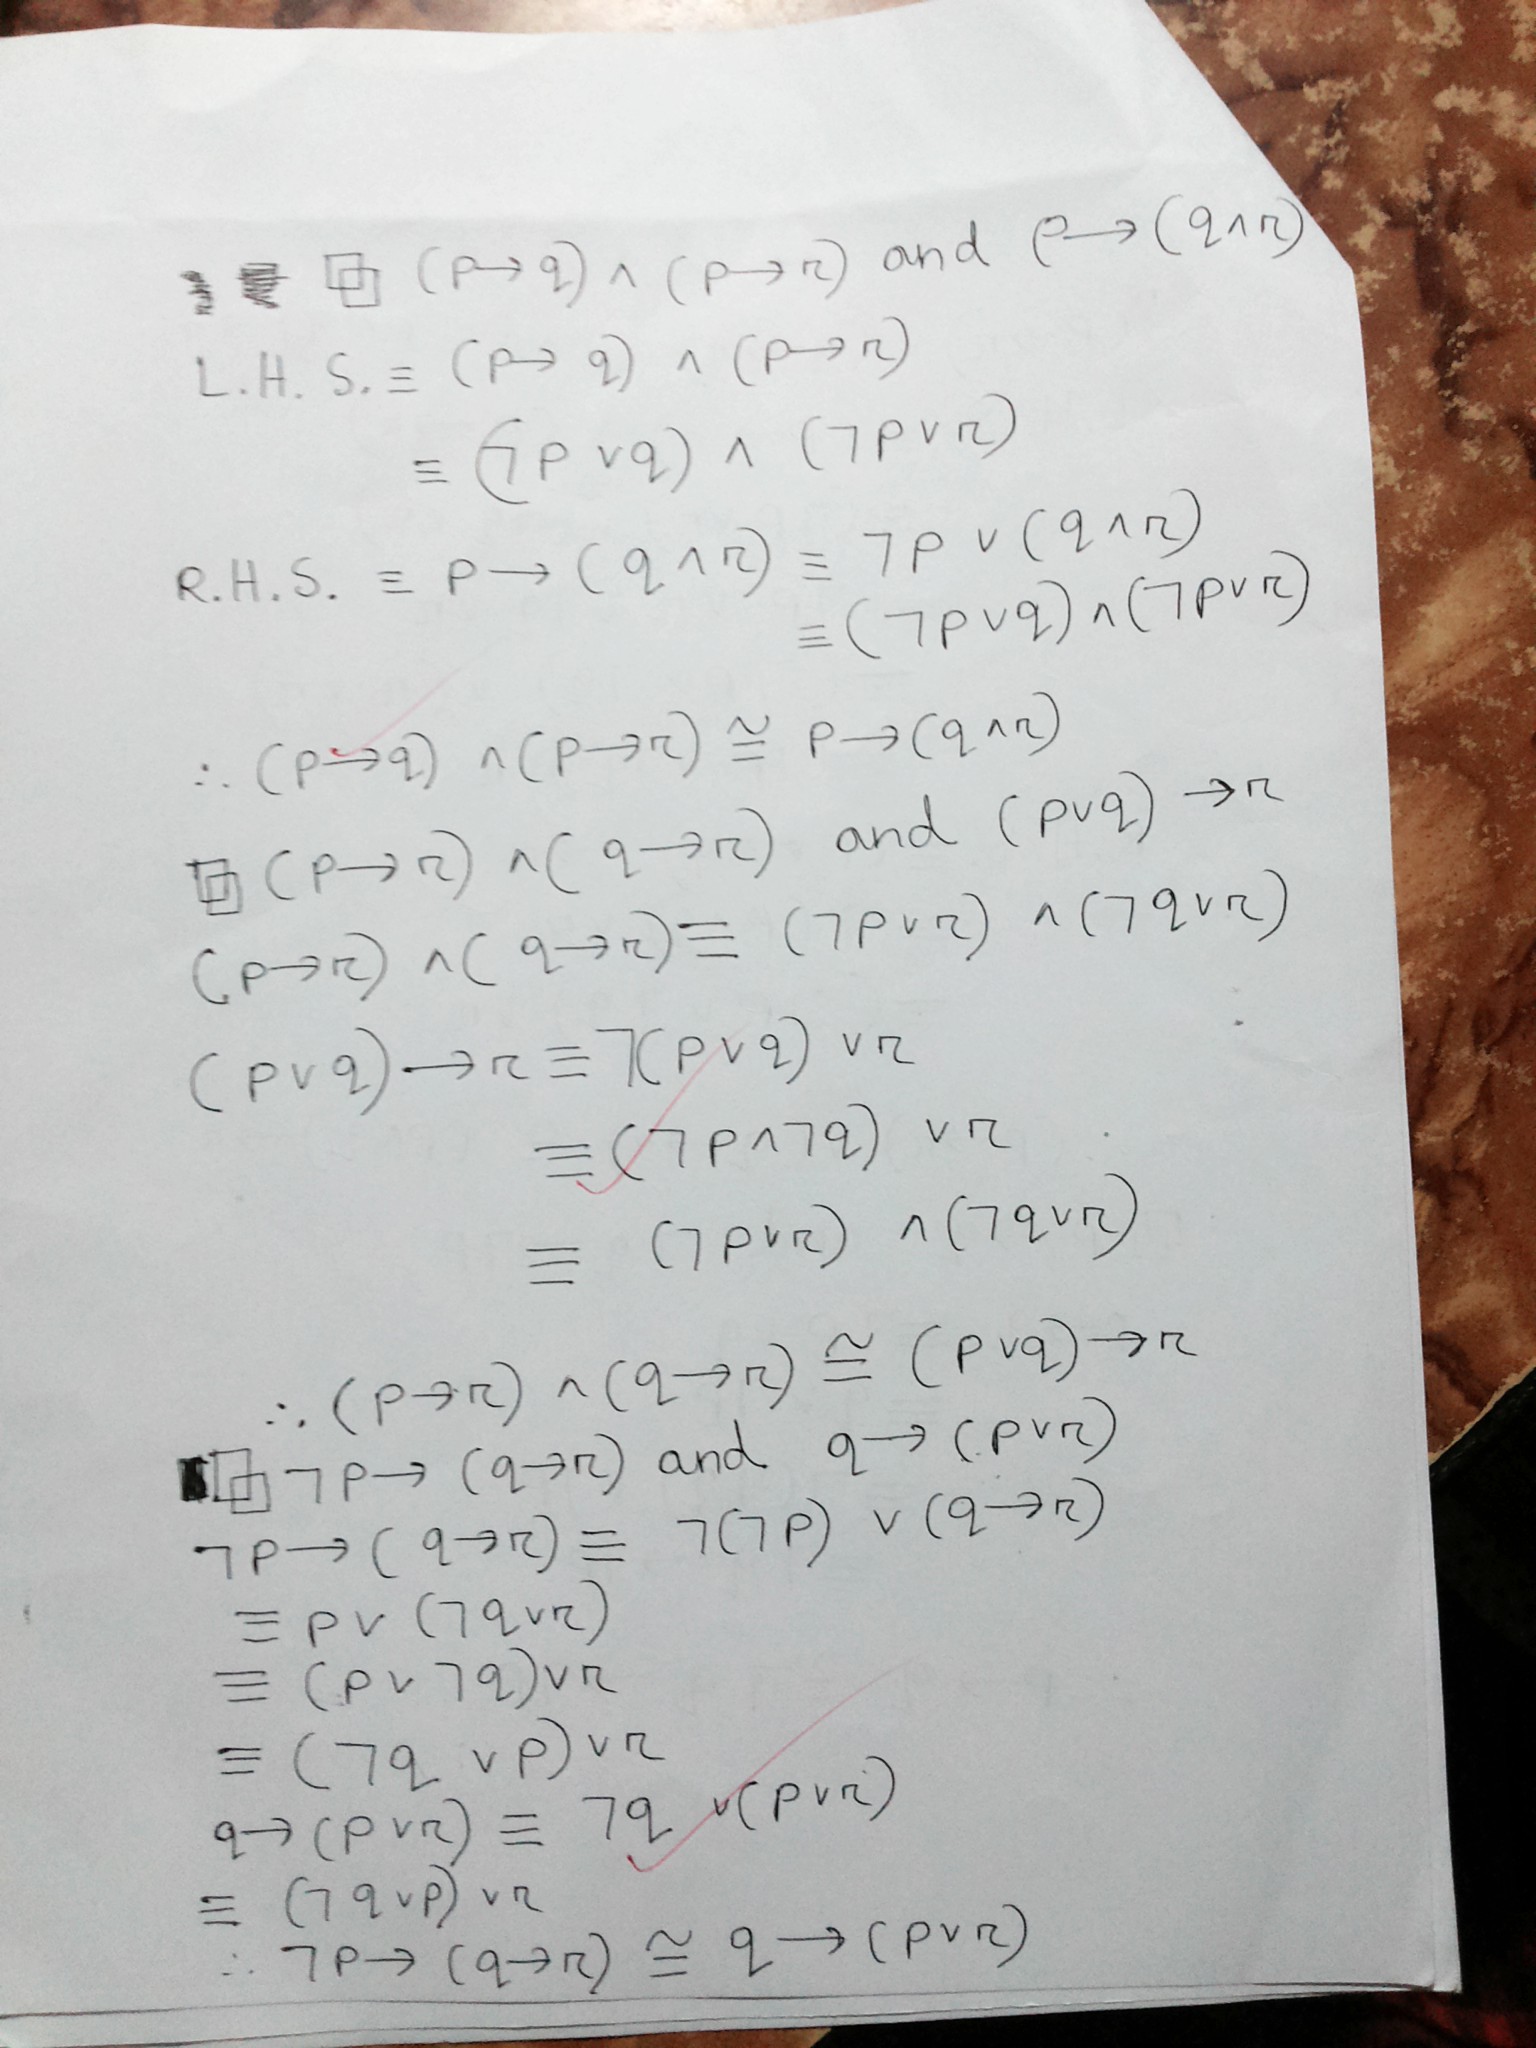 (p→q) ∧ (p→r) and p→(q∧r)
L.H.S. ≡ (p→q) ∧ (p→r)
≡ (¬p∨q) ∧ (¬p∨r)
R.H.S. ≡ p→(q∧r) ≡ ¬p∨(q∧r)
≡ (¬p∨q)∧(¬p∨r)
∴ (p→q) ∧(p→r) ≅ p→(q∧r)
(p→r) ∧(q→r) and (p∨q)→r
(p→r) ∧(q→r) ≡ (¬p∨r) ∧(¬q∨r)
(p∨q)→r ≡ ¬(p∨q) ∨r
≡ (¬p∧¬q) ∨r
≡ (¬p∨r) ∧(¬q∨r)
∴ (p→r) ∧(q→r) ≅ (p∨q)→r
¬p→(q→r) and q→(p∨r)
¬p→(q→r) ≡ ¬(¬p) ∨(q→r)
≡ p∨(¬q∨r)
≡ (p∨¬q)∨r
≡ (¬q∨p)∨r
q→(p∨r) ≡ ¬q ∨(p∨r)
≡ (¬q∨p)∨r
∴ ¬p→(q→r) ≅ q→(p∨r)